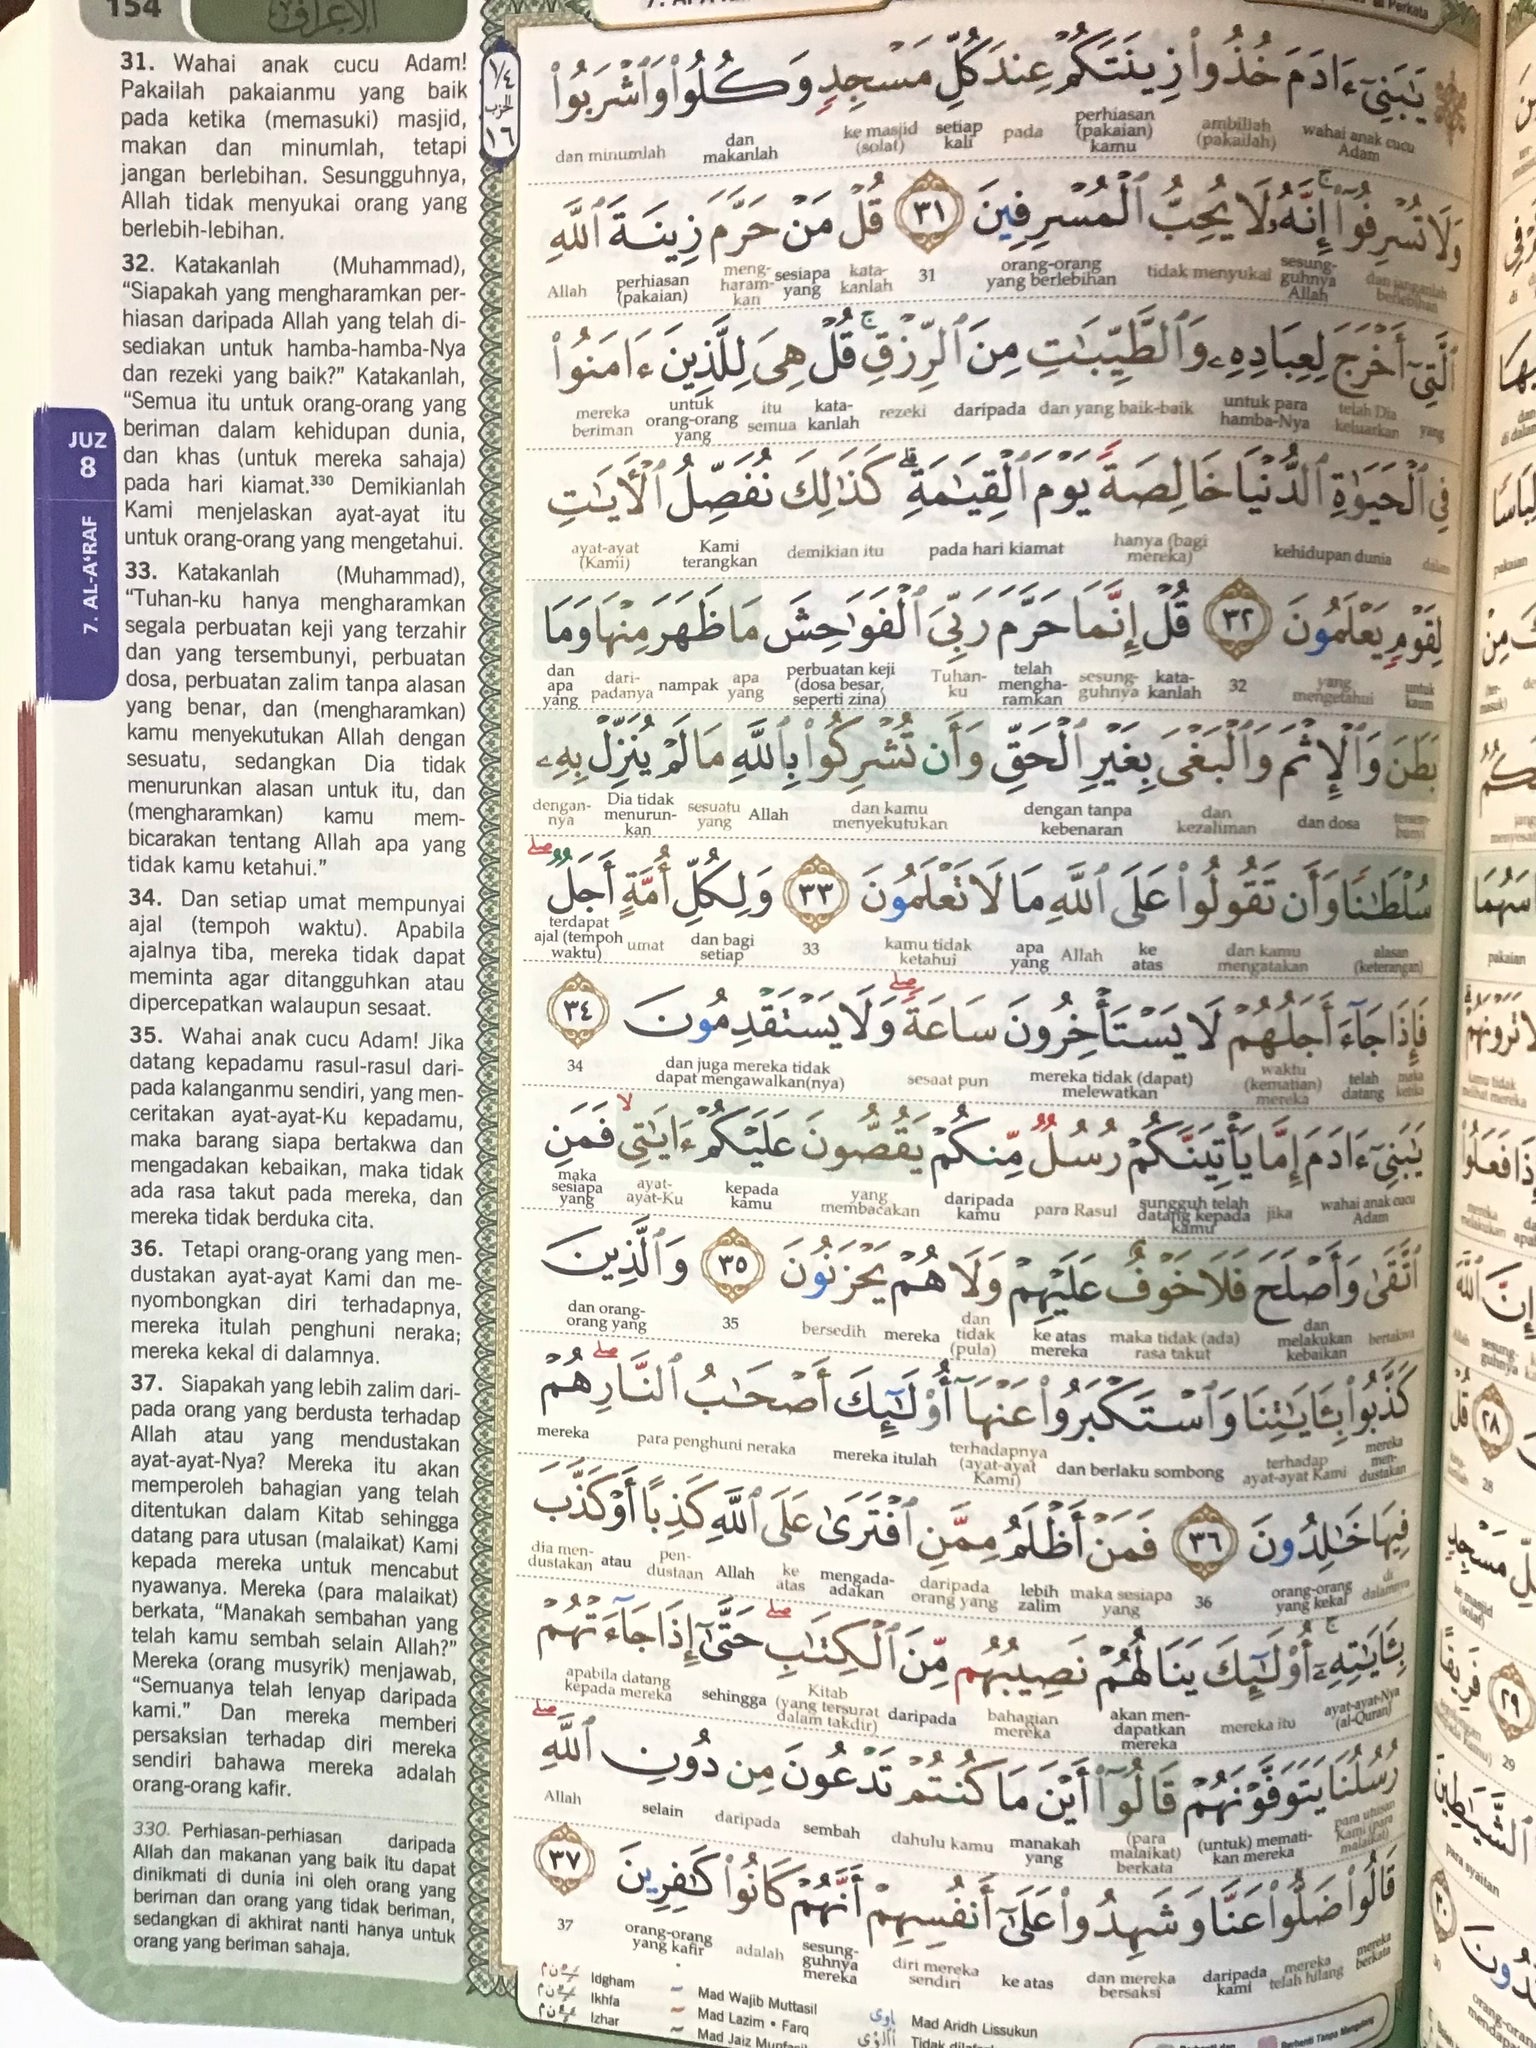 154
الأعراف
31. Wahai anak cucu Adam!
Pakailah pakaianmu yang baik
pada ketika (memasuki) masjid,
makan dan minumlah, tetapi
jangan berlebihan. Sesungguhnya,
Allah tidak menyukai orang yang
berlebih-lebihan.
32. Katakanlah (Muhammad),
“Siapakah yang mengharamkan per-
hiasan daripada Allah yang telah di-
sediakan untuk hamba-hamba-Nya
dan rezeki yang baik?” Katakanlah,
“Semua itu untuk orang-orang yang
beriman dalam kehidupan dunia,
dan khas (untuk mereka sahaja)
pada hari kiamat.³³⁰ Demikianlah
Kami menjelaskan ayat-ayat itu
untuk orang-orang yang mengetahui.
33. Katakanlah (Muhammad),
“Tuhan-ku hanya mengharamkan
segala perbuatan keji yang terzahir
dan yang tersembunyi, perbuatan
dosa, perbuatan zalim tanpa alasan
yang benar, dan (mengharamkan)
kamu menyekutukan Allah dengan
sesuatu, sedangkan Dia tidak
menurunkan alasan untuk itu, dan
(mengharamkan) kamu mem-
bicarakan tentang Allah apa yang
tidak kamu ketahui.”
34. Dan setiap umat mempunyai
ajal (tempoh waktu). Apabila
ajalnya tiba, mereka tidak dapat
meminta agar ditangguhkan atau
dipercepatkan walaupun sesaat.
35. Wahai anak cucu Adam! Jika
datang kepadamu rasul-rasul dari-
pada kalanganmu sendiri, yang men-
ceritakan ayat-ayat-Ku kepadamu,
maka barang siapa bertakwa dan
mengadakan kebaikan, maka tidak
ada rasa takut pada mereka, dan
mereka tidak berduka cita.
36. Tetapi orang-orang yang men-
dustakan ayat-ayat Kami dan me-
nyombongkan diri terhadapnya,
mereka itulah penghuni neraka;
mereka kekal di dalamnya.
37. Siapakah yang lebih zalim dari-
pada orang yang berdusta terhadap
Allah atau yang mendustakan
ayat-ayat-Nya? Mereka itu akan
memperoleh bahagian yang telah
ditentukan dalam Kitab sehingga
datang para utusan (malaikat) Kami
kepada mereka untuk mencabut
nyawanya. Mereka (para malaikat)
berkata, “Manakah sembahan yang
telah kamu sembah selain Allah?”
Mereka (orang musyrik) menjawab,
“Semuanya telah lenyap daripada
kami.” Dan mereka memberi
persaksian terhadap diri mereka
sendiri bahawa mereka adalah
orang-orang kafir.
330. Perhiasan-perhiasan daripada
Allah dan makanan yang baik itu dapat
dinikmati di dunia ini oleh orang yang
beriman dan orang yang tidak beriman,
sedangkan di akhirat nanti hanya untuk
orang yang beriman sahaja.
JUZ
8
7. AL-A‘RAF
١/٤
الحزب
١٦
يَٰبَنِىٓ ءَادَمَ خُذُوا۟ زِينَتَكُمْ عِندَ كُلِّ مَسْجِدٍ وَكُلُوا۟ وَٱشْرَبُوا۟
wahai anak cucu Adam ambillah (pakailah) perhiasan (pakaian) kamu pada setiap kali ke masjid (solat) dan makanlah dan minumlah
وَلَا تُسْرِفُوٓا۟ ۚ إِنَّهُۥ لَا يُحِبُّ ٱلْمُسْرِفِينَ ٣١ قُلْ مَنْ حَرَّمَ زِينَةَ ٱللَّهِ
dan janganlah berlebihan sesung-guhnya Allah tidak menyukai orang-orang yang berlebihan 31 kata-kanlah sesiapa yang meng-haram-kan perhiasan (pakaian) Allah
ٱلَّتِىٓ أَخْرَجَ لِعِبَادِهِۦ وَٱلطَّيِّبَٰتِ مِنَ ٱلرِّزْقِ ۚ قُلْ هِىَ لِلَّذِينَ ءَامَنُوا۟
yang telah Dia keluarkan untuk para hamba-Nya dan yang baik-baik daripada rezeki kata-kanlah itu semua untuk orang-orang yang mereka beriman
فِى ٱلْحَيَوٰةِ ٱلدُّنْيَا خَالِصَةً يَوْمَ ٱلْقِيَٰمَةِ ۗ كَذَٰلِكَ نُفَصِّلُ ٱلْءَايَٰتِ
dalam kehidupan dunia hanya (bagi mereka) pada hari kiamat demikian itu Kami terangkan ayat-ayat (Kami)
لِقَوْمٍ يَعْلَمُونَ ٣٢ قُلْ إِنَّمَا حَرَّمَ رَبِّىَ ٱلْفَوَٰحِشَ مَا ظَهَرَ مِنْهَا وَمَا
untuk kaum yang mengetahui 32 kata-kanlah sesung-guhnya telah mengha-ramkan Tuhan-ku perbuatan keji (dosa besar, seperti zina) apa yang nampak dari-padanya dan apa yang
بَطَنَ وَٱلْإِثْمَ وَٱلْبَغْىَ بِغَيْرِ ٱلْحَقِّ وَأَن تُشْرِكُوا۟ بِٱللَّهِ مَا لَمْ يُنَزِّلْ بِهِۦ
tersem-bunyi dan dosa dan kezaliman dengan tanpa kebenaran dan kamu menyekutukan Allah sesuatu yang Dia tidak menurun-kan dengan-nya
سُلْطَٰنًا وَأَن تَقُولُوا۟ عَلَى ٱللَّهِ مَا لَا تَعْلَمُونَ ٣٣ وَلِكُلِّ أُمَّةٍ أَجَلٌ ۖ
alasan (keterangan) dan kamu mengatakan ke atas Allah apa yang kamu tidak ketahui 33 dan bagi setiap umat terdapat ajal (tempoh waktu)
فَإِذَا جَآءَ أَجَلُهُمْ لَا يَسْتَأْخِرُونَ سَاعَةً ۖ وَلَا يَسْتَقْدِمُونَ ٣٤
maka ketika telah datang waktu (kematian) mereka mereka tidak (dapat) melewatkan sesaat pun dan juga mereka tidak dapat mengawalkan(nya) 34
يَٰبَنِىٓ ءَادَمَ إِمَّا يَأْتِيَنَّكُمْ رُسُلٌ مِّنكُمْ يَقُصُّونَ عَلَيْكُمْ ءَايَٰتِى ۙ فَمَنِ
wahai anak cucu Adam jika sungguh telah datang kepada kamu para Rasul daripada kamu yang membacakan kepada kamu ayat-ayat-Ku maka sesiapa yang
ٱتَّقَىٰ وَأَصْلَحَ فَلَا خَوْفٌ عَلَيْهِمْ وَلَا هُمْ يَحْزَنُونَ ٣٥ وَٱلَّذِينَ
bertakwa dan melakukan kebaikan maka tidak (ada) rasa takut ke atas mereka dan tidak (pula) mereka bersedih 35 dan orang-orang yang
كَذَّبُوا۟ بِـَٔايَٰتِنَا وَٱسْتَكْبَرُوا۟ عَنْهَآ أُو۟لَٰٓئِكَ أَصْحَٰبُ ٱلنَّارِ ۖ هُمْ
mereka men-dustakan terhadap ayat-ayat Kami dan berlaku sombong terhadapnya (ayat-ayat Kami) mereka itulah para penghuni neraka mereka
فِيهَا خَٰلِدُونَ ٣٦ فَمَنْ أَظْلَمُ مِمَّنِ ٱفْتَرَىٰ عَلَى ٱللَّهِ كَذِبًا أَوْ كَذَّبَ
di dalamnya orang-orang yang kekal 36 maka sesiapa yang lebih zalim daripada orang yang mengada-adakan ke atas Allah pen-dustaan atau dia men-dustakan
بِـَٔايَٰتِهِۦٓ ۚ أُو۟لَٰٓئِكَ يَنَالُهُمْ نَصِيبُهُم مِّنَ ٱلْكِتَٰبِ ۖ حَتَّىٰٓ إِذَا جَآءَتْهُمْ
ayat-ayat-Nya (al-Quran) mereka itu akan men-dapatkan mereka bahagian mereka daripada Kitab (yang tersurat dalam takdir) sehingga apabila datang kepada mereka
رُسُلُنَا يَتَوَفَّوْنَهُمْ قَالُوٓا۟ أَيْنَ مَا كُنتُمْ تَدْعُونَ مِن دُونِ ٱللَّهِ ۖ
para utusan Kami (para malaikat) (untuk) memati-kan mereka (para malaikat) berkata manakah yang dahulu kamu sembah daripada selain Allah
قَالُوا۟ ضَلُّوا۟ عَنَّا وَشَهِدُوا۟ عَلَىٰٓ أَنفُسِهِمْ أَنَّهُمْ كَانُوا۟ كَٰفِرِينَ ٣٧
mereka berkata mereka telah hilang daripada kami dan mereka bersaksi ke atas diri mereka sendiri sesung-guhnya mereka adalah orang-orang yang kafir 37
Idgham
Ikhfa
Izhar
Mad Wajib Muttasil
Mad Lazim • Farq
Mad Jaiz
Mad Aridh Lissukun
Berhenti Tanpa